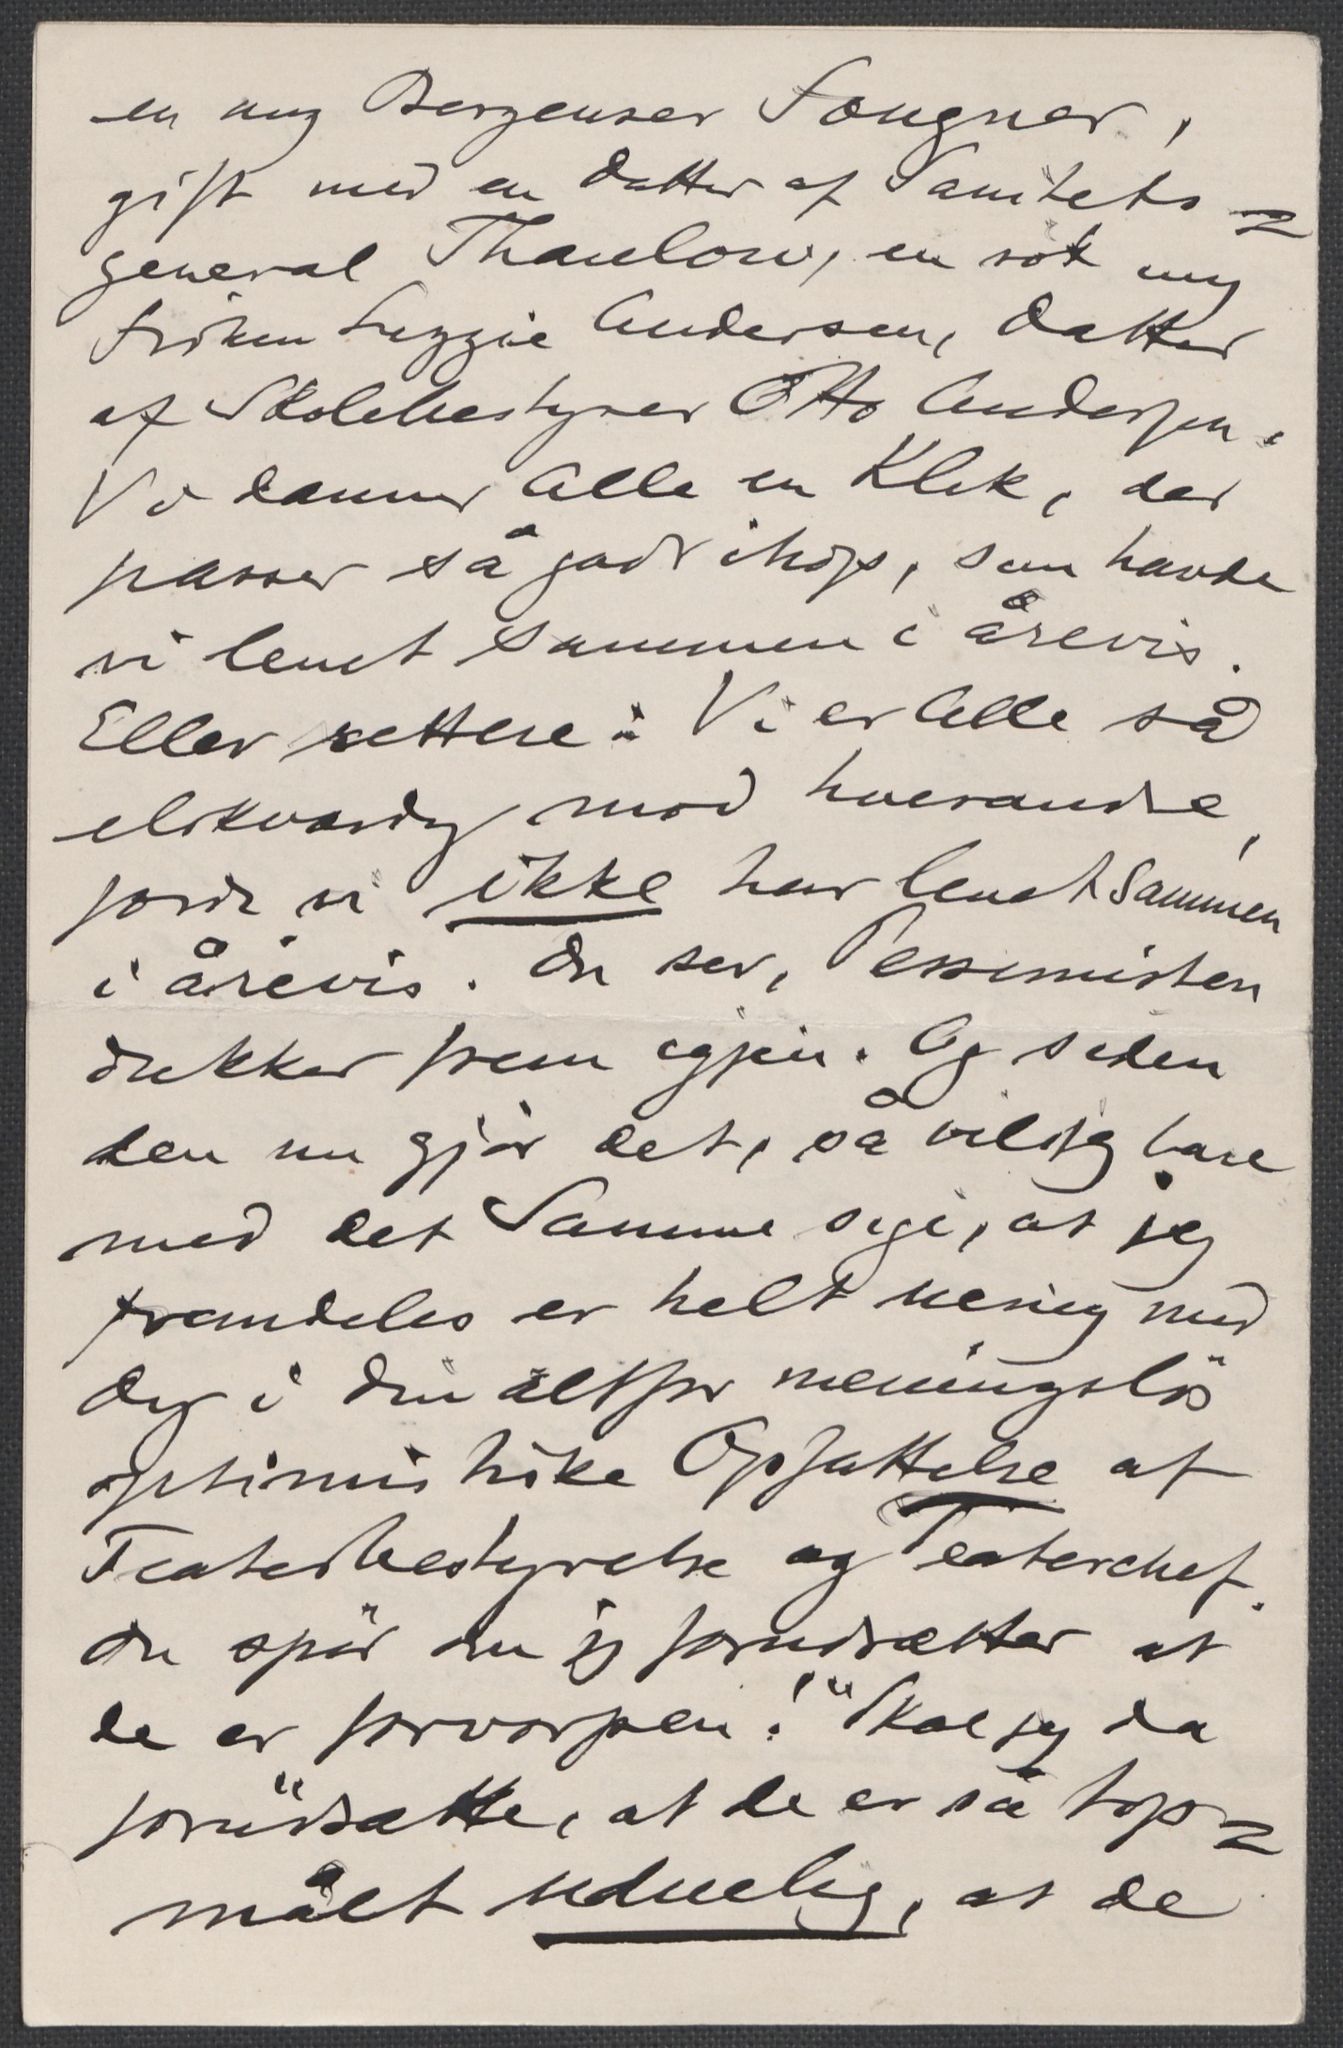 en ung Bergenser Fougner,
gift med en Datter af Sanitets-
general Thaulow, en söt ung
Fröken Lizzie Andersen, Datter
af Skolebestyrer Otto Andersen.
Vi danner Alle en Klik, der
passer så godt ihop, som havde
vi levet sammen i årevis.
Eller rettere: Vi er Alle så
elskværdig mod hverandre,
fordi vi ikke har levet sammen
i årevis. Du ser, Pessimisten
dukker frem igjen. Og siden
den nu gjör det, så vil jeg bare
med det Samme sige, at jeg
fremdeles er helt uenig med
dig i din altfor meningslös
optimistiske Opfattelse af
Teaterbestyrelse og Teaterchef.
Du spör om jeg forudsætter at
de er forvorpen! Skal jeg da
forudsætte, at de er så top-
målt uduelig, at de